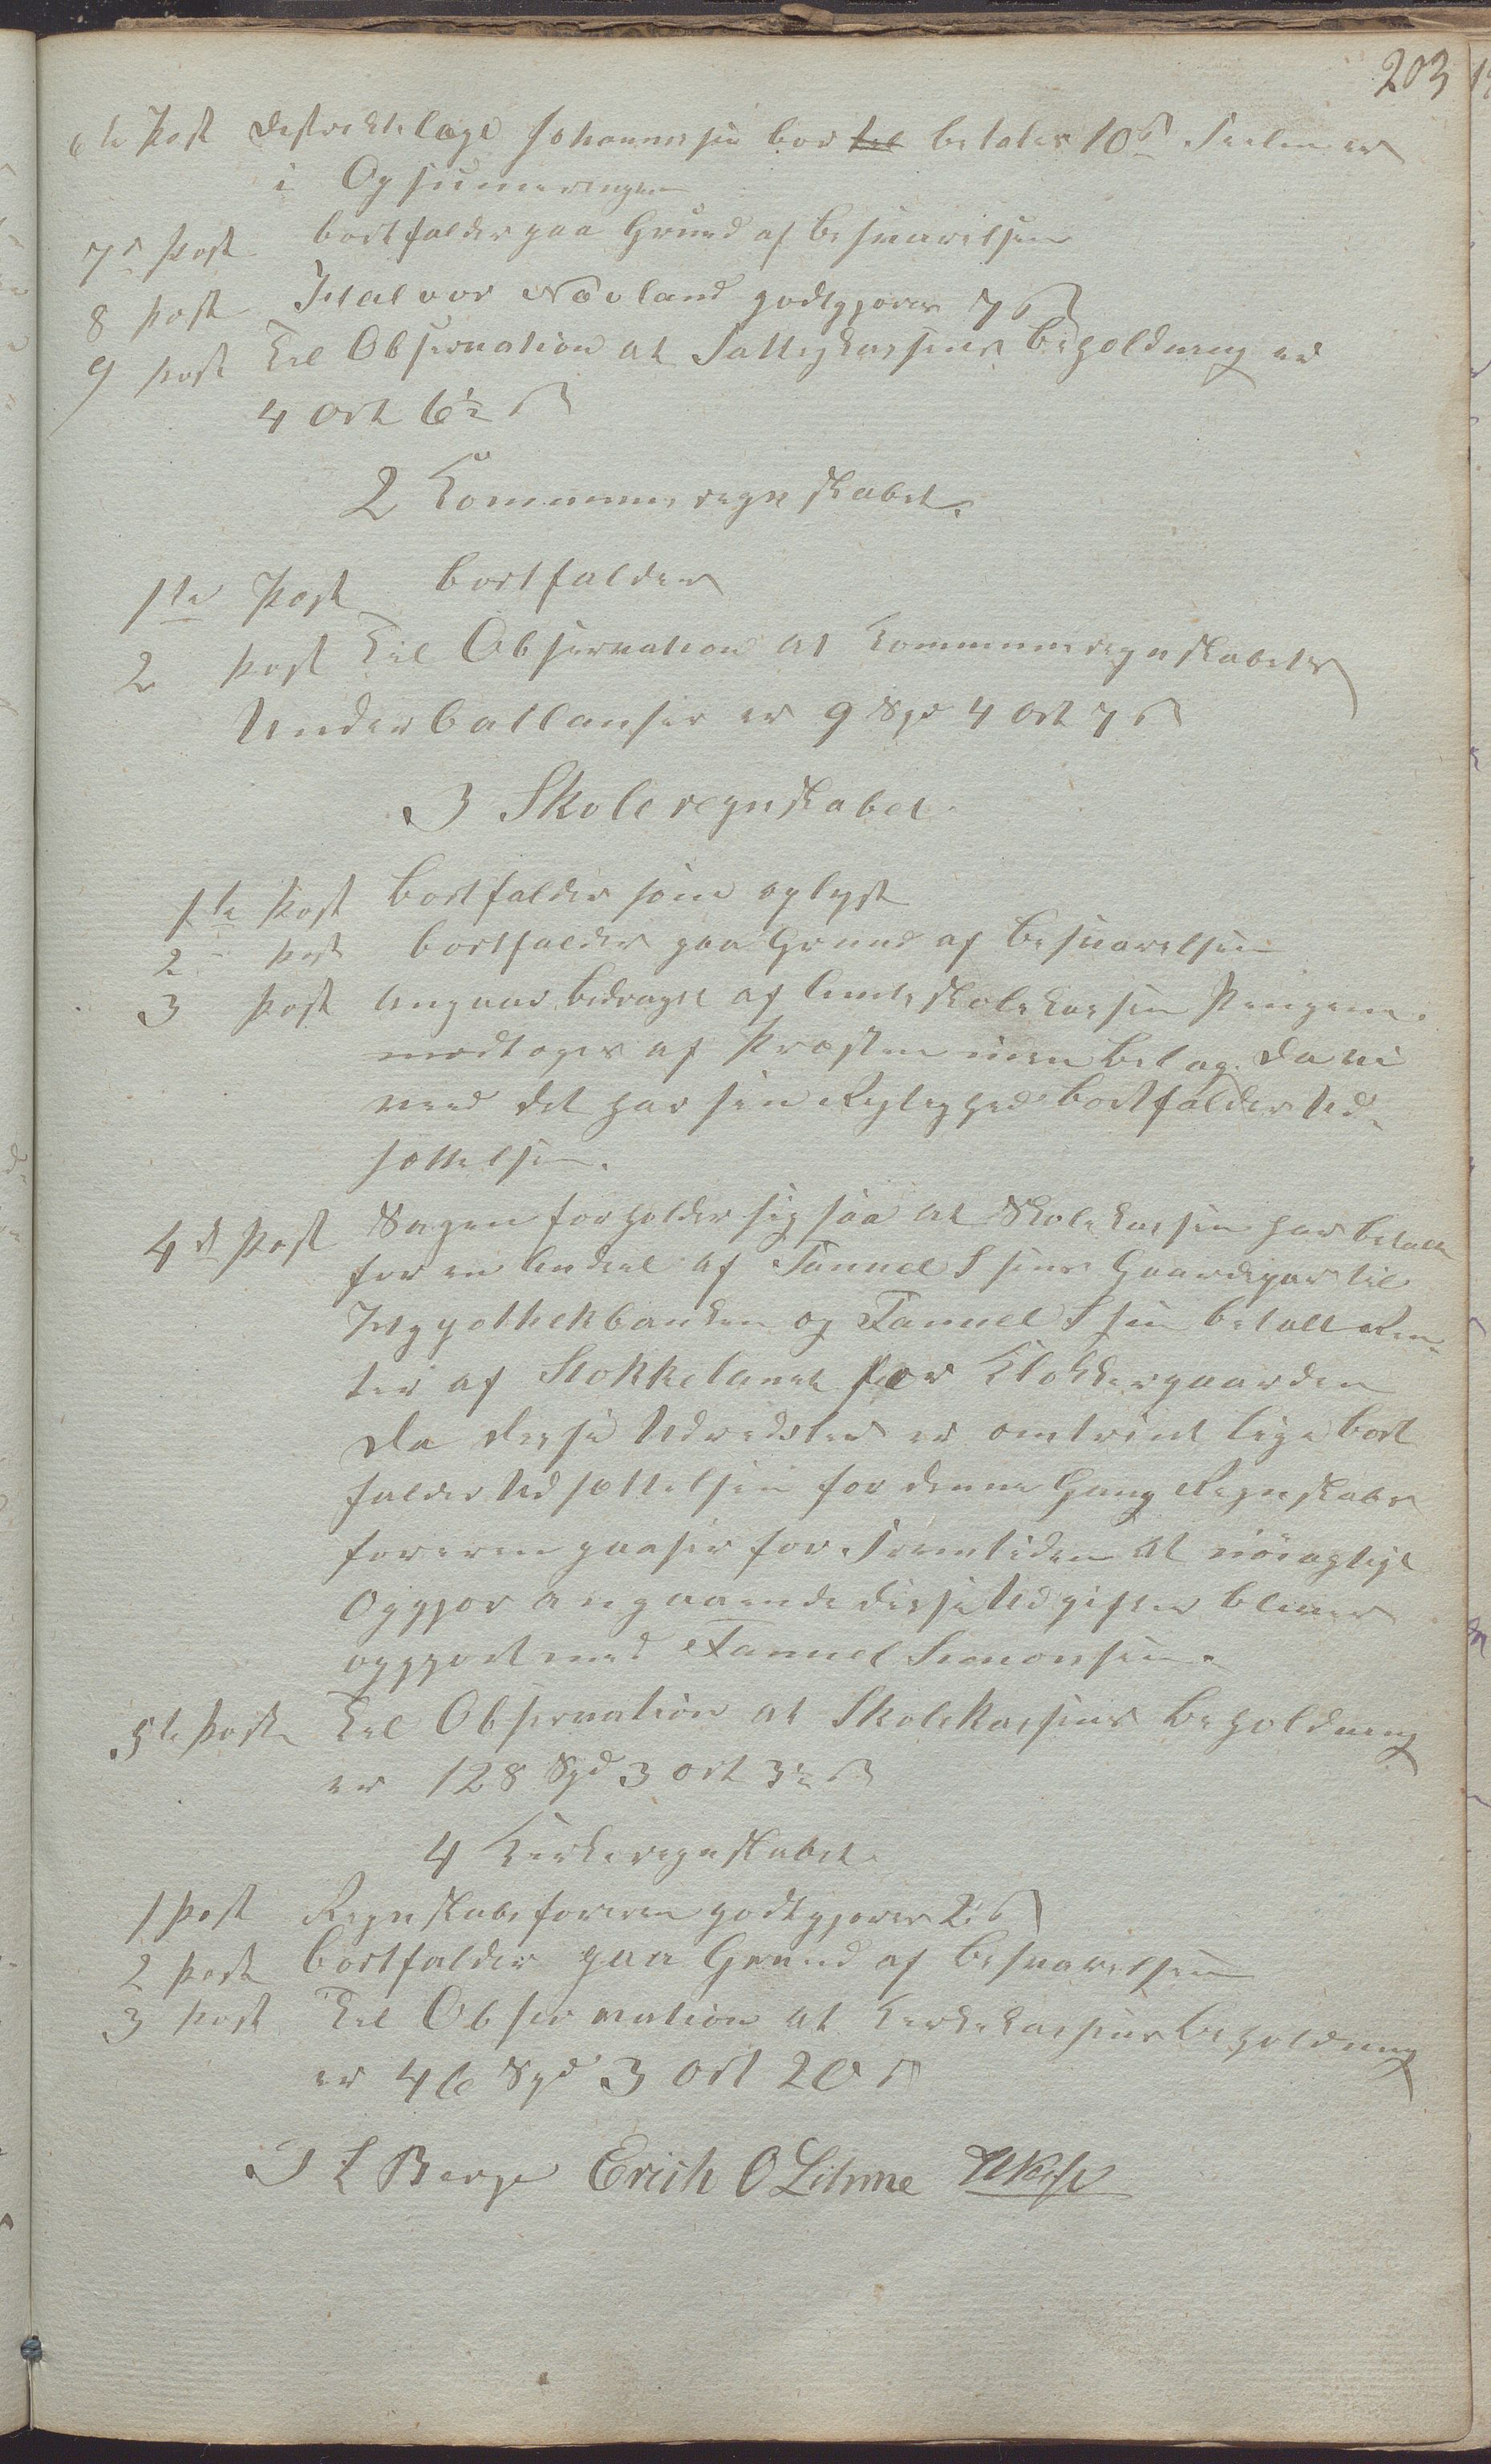 203
6te Post Destrektslage Johannessen bør t̶i̶l̶ betales 10 ß Feilen er
i Opsumeringen
7de Post bortfalder paa Grund af Besvarelsen
8 Post Ital vor Novland godtgjøres 7 ß
9 Post Til Observation at Fattigkassens Beholdning er
4 Ort 6½ ß
2 Kommuneregnskabet.
1te Post bortfalder
2 Post Til Observation at Kommuneregnskabets
Underballanser er 9 Spd 4 Ort 7 ß
3 Skoleregnskabet
1te Post Bortfalder som oplyst
2 Post bortfalder paa Grund af Besvarelsen
3 Post Angaar Bidraget af Amtsskolekassen Pengene
modtoges af Præsten uden Belag. Da vi
veed det har sin Rigtighed bortfalder Ud-
sættelsen.
4de Post Sagen forholder sig saa at Skolekassen har betalt
for en Andeel af Tønnes Ssens Gaardepar til
Hypothekbanken og Tønnes Ssen betalt Ren-
ter af Stokkelandt for Klokkergaarden
Da disse Udredsler er omtrent lige bort
falder Udsættelsen for denne Gang Regnskabs
føreren paaser for Fremtiden at nøiagtigt
Opgjør angaaende disse Udgifter bliver
opgjort med Tønnes Simonsen.
5te Post Til Observation at Skolekassens Beholdning
er 128 Spd 3 Ort 3½ ß
4 Kirkeregnskabet
1 Post Regnskabsføreren godtgjøres 2 ß
2 Post bortfalder paa Grund af Besvarelsen
3 Post Til Observation at Kirkekassens Beholdning
er 46 Spd 3 Ort 20 ß
L Berge Erich O Lihme